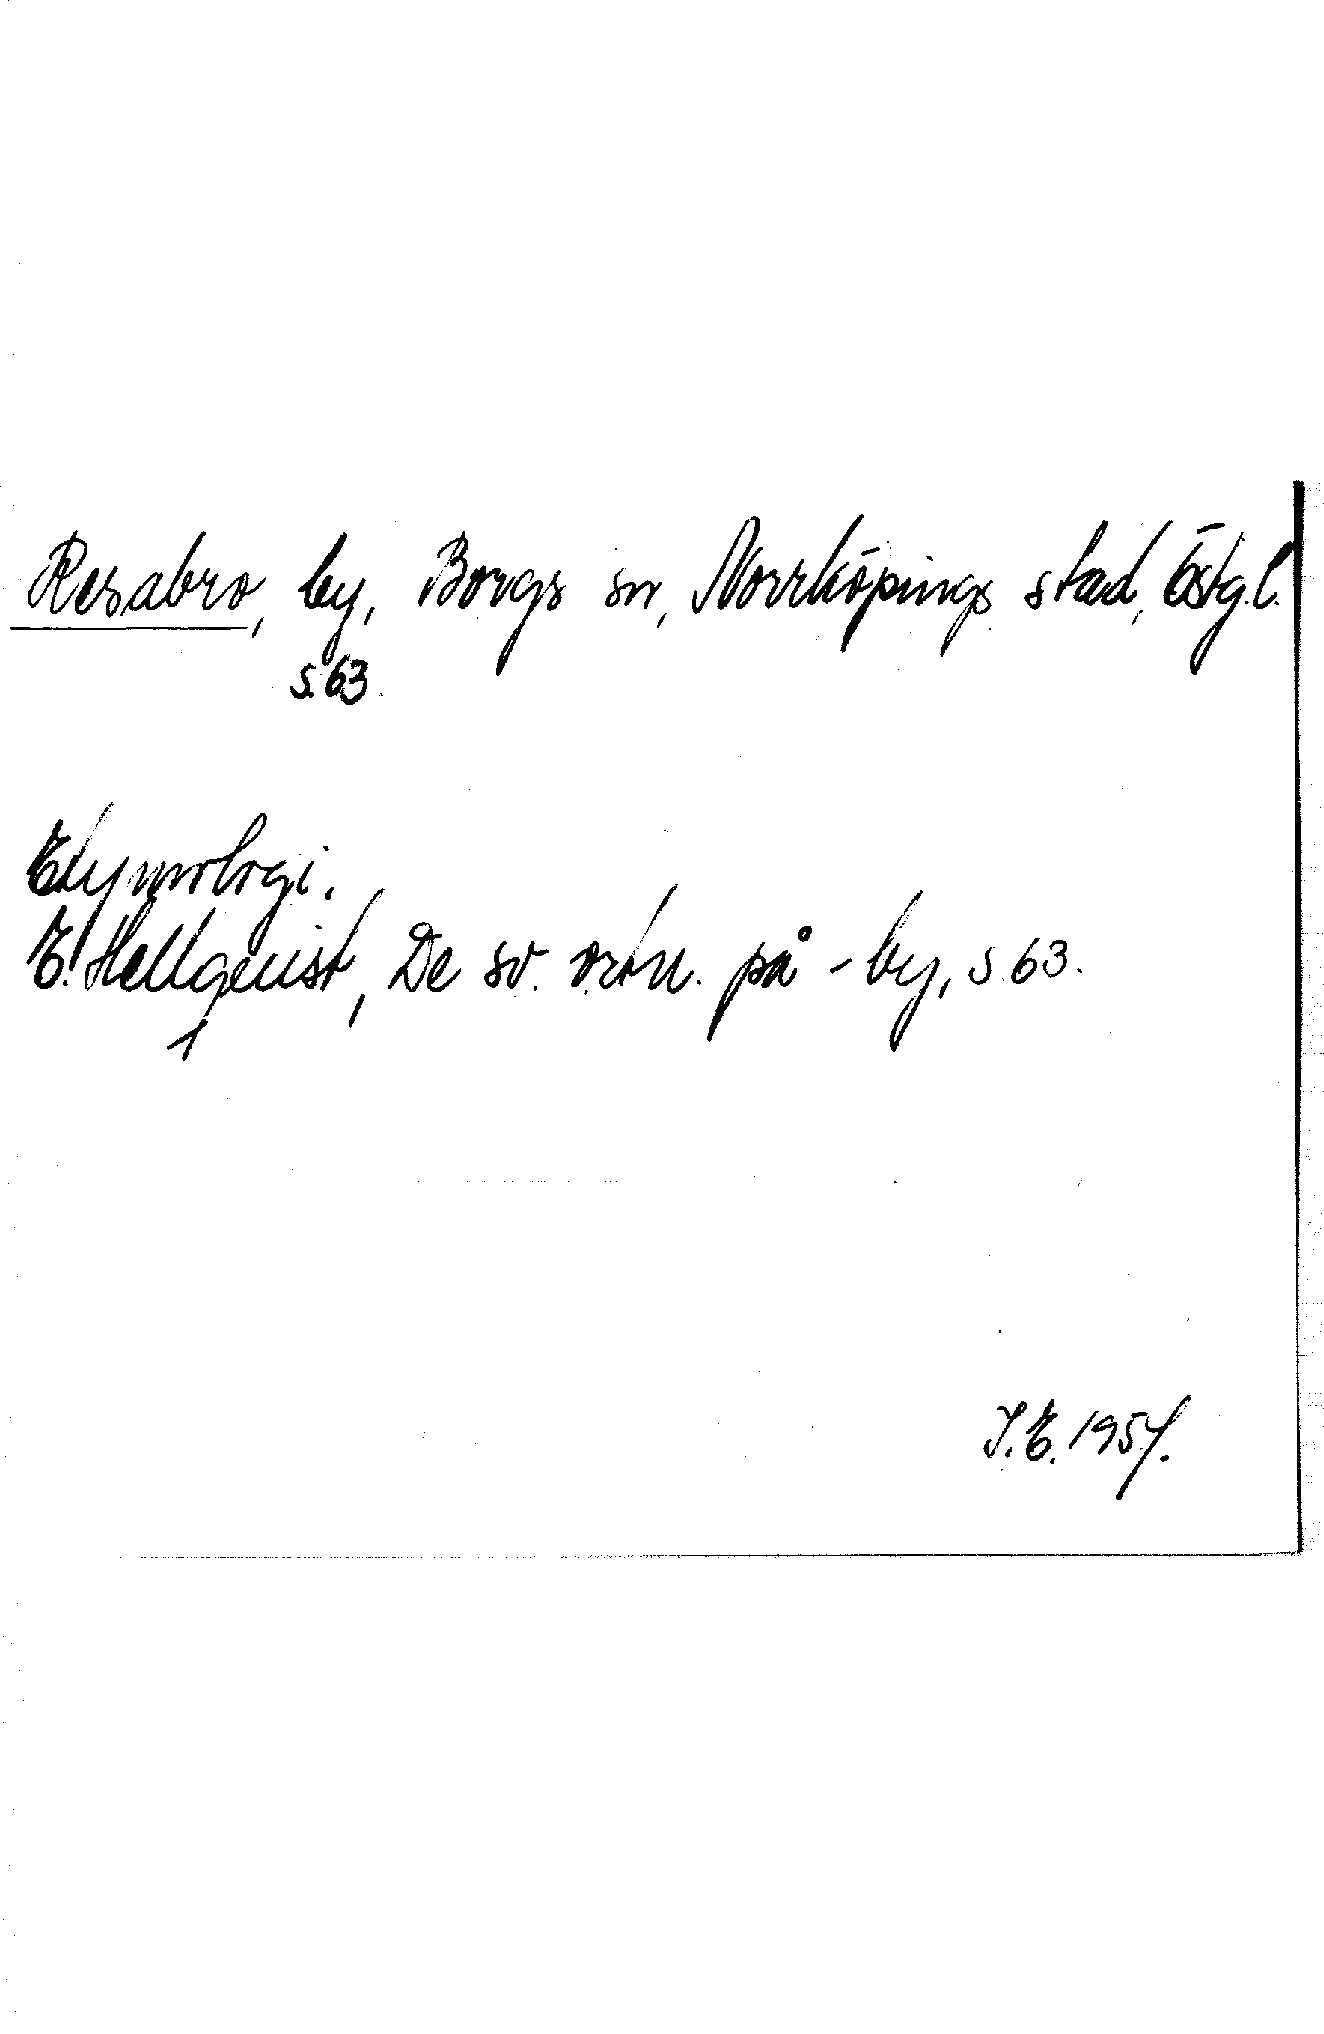 Resabro, by, Borgs sn, Norrköpings stad, Östg.l.
s.63.
Etymologi.
E. Hellquist, De sv. ortn. på -by, s.63.
I.E. 1957.